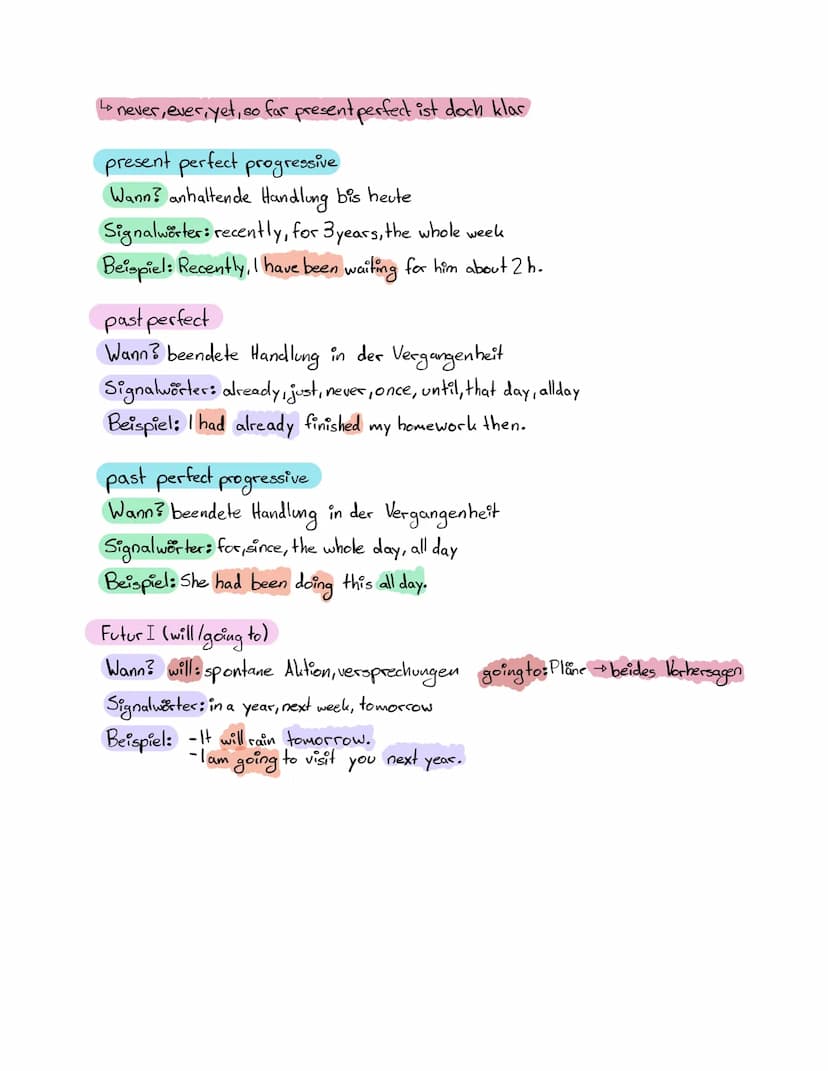 ↳ never, ever, yet, so far present perfect ist doch klar
present perfect progressive
Wann? anhaltende Handlung bis heute
Signalwörter: recently, for 3 years, the whole week
Beispiel: Recently, I have been waiting for him about 2 h.
past perfect
Wann? beendete Handlung in der Vergangenheit
Signalwörter: already, just, never, once, until, that day, allday
Beispiel: I had already finished my homework then.
past perfect progressive
Wann? beendete Handlung in der Vergangenheit
Signalwörter: for, since, the whole day, all day
Beispiel: She had been doing this all day.
Futur I (will/going to)
Wann? will: spontane Aktion, versprechungen going to: Pläne → beides Vorhersagen
Signalwörter: in a year, next week, tomorrow
Beispiel: - It will rain tomorrow.
- I am going to visit you next year.